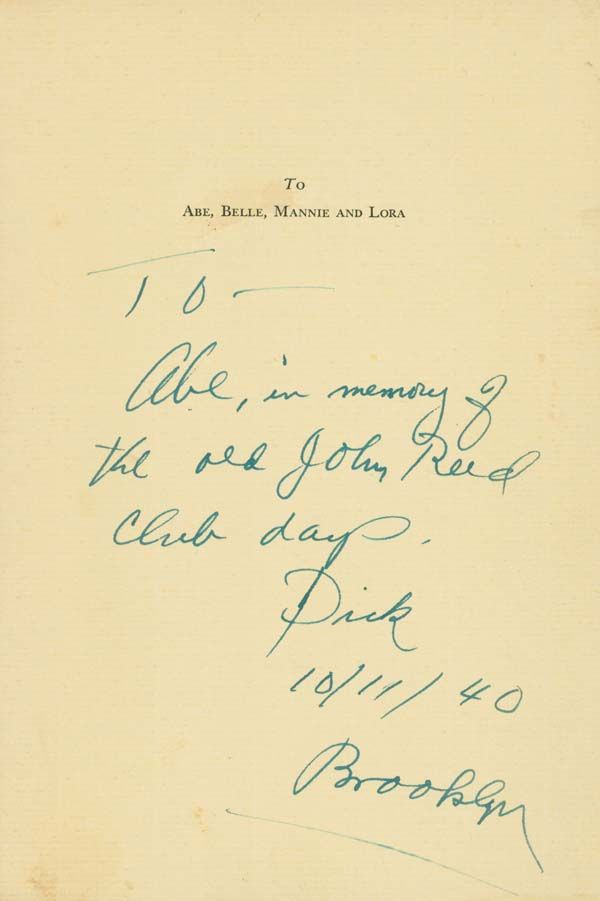 To
Abe, Belle, Mannie and Lora
TO —
Abe, in memory of
the old John Reed
Club days.
Dick
10/11/40
Brooklyn